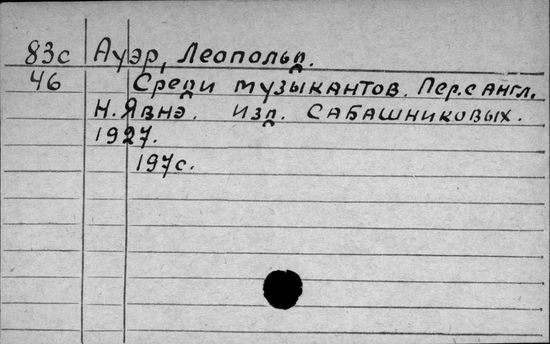 83с Ауэр, Леопольд.
46 Среди музыкантов. Пер. с англ.
Н. Явнэ. изд. САБАШНИКОВЫХ.
1927.
197с.